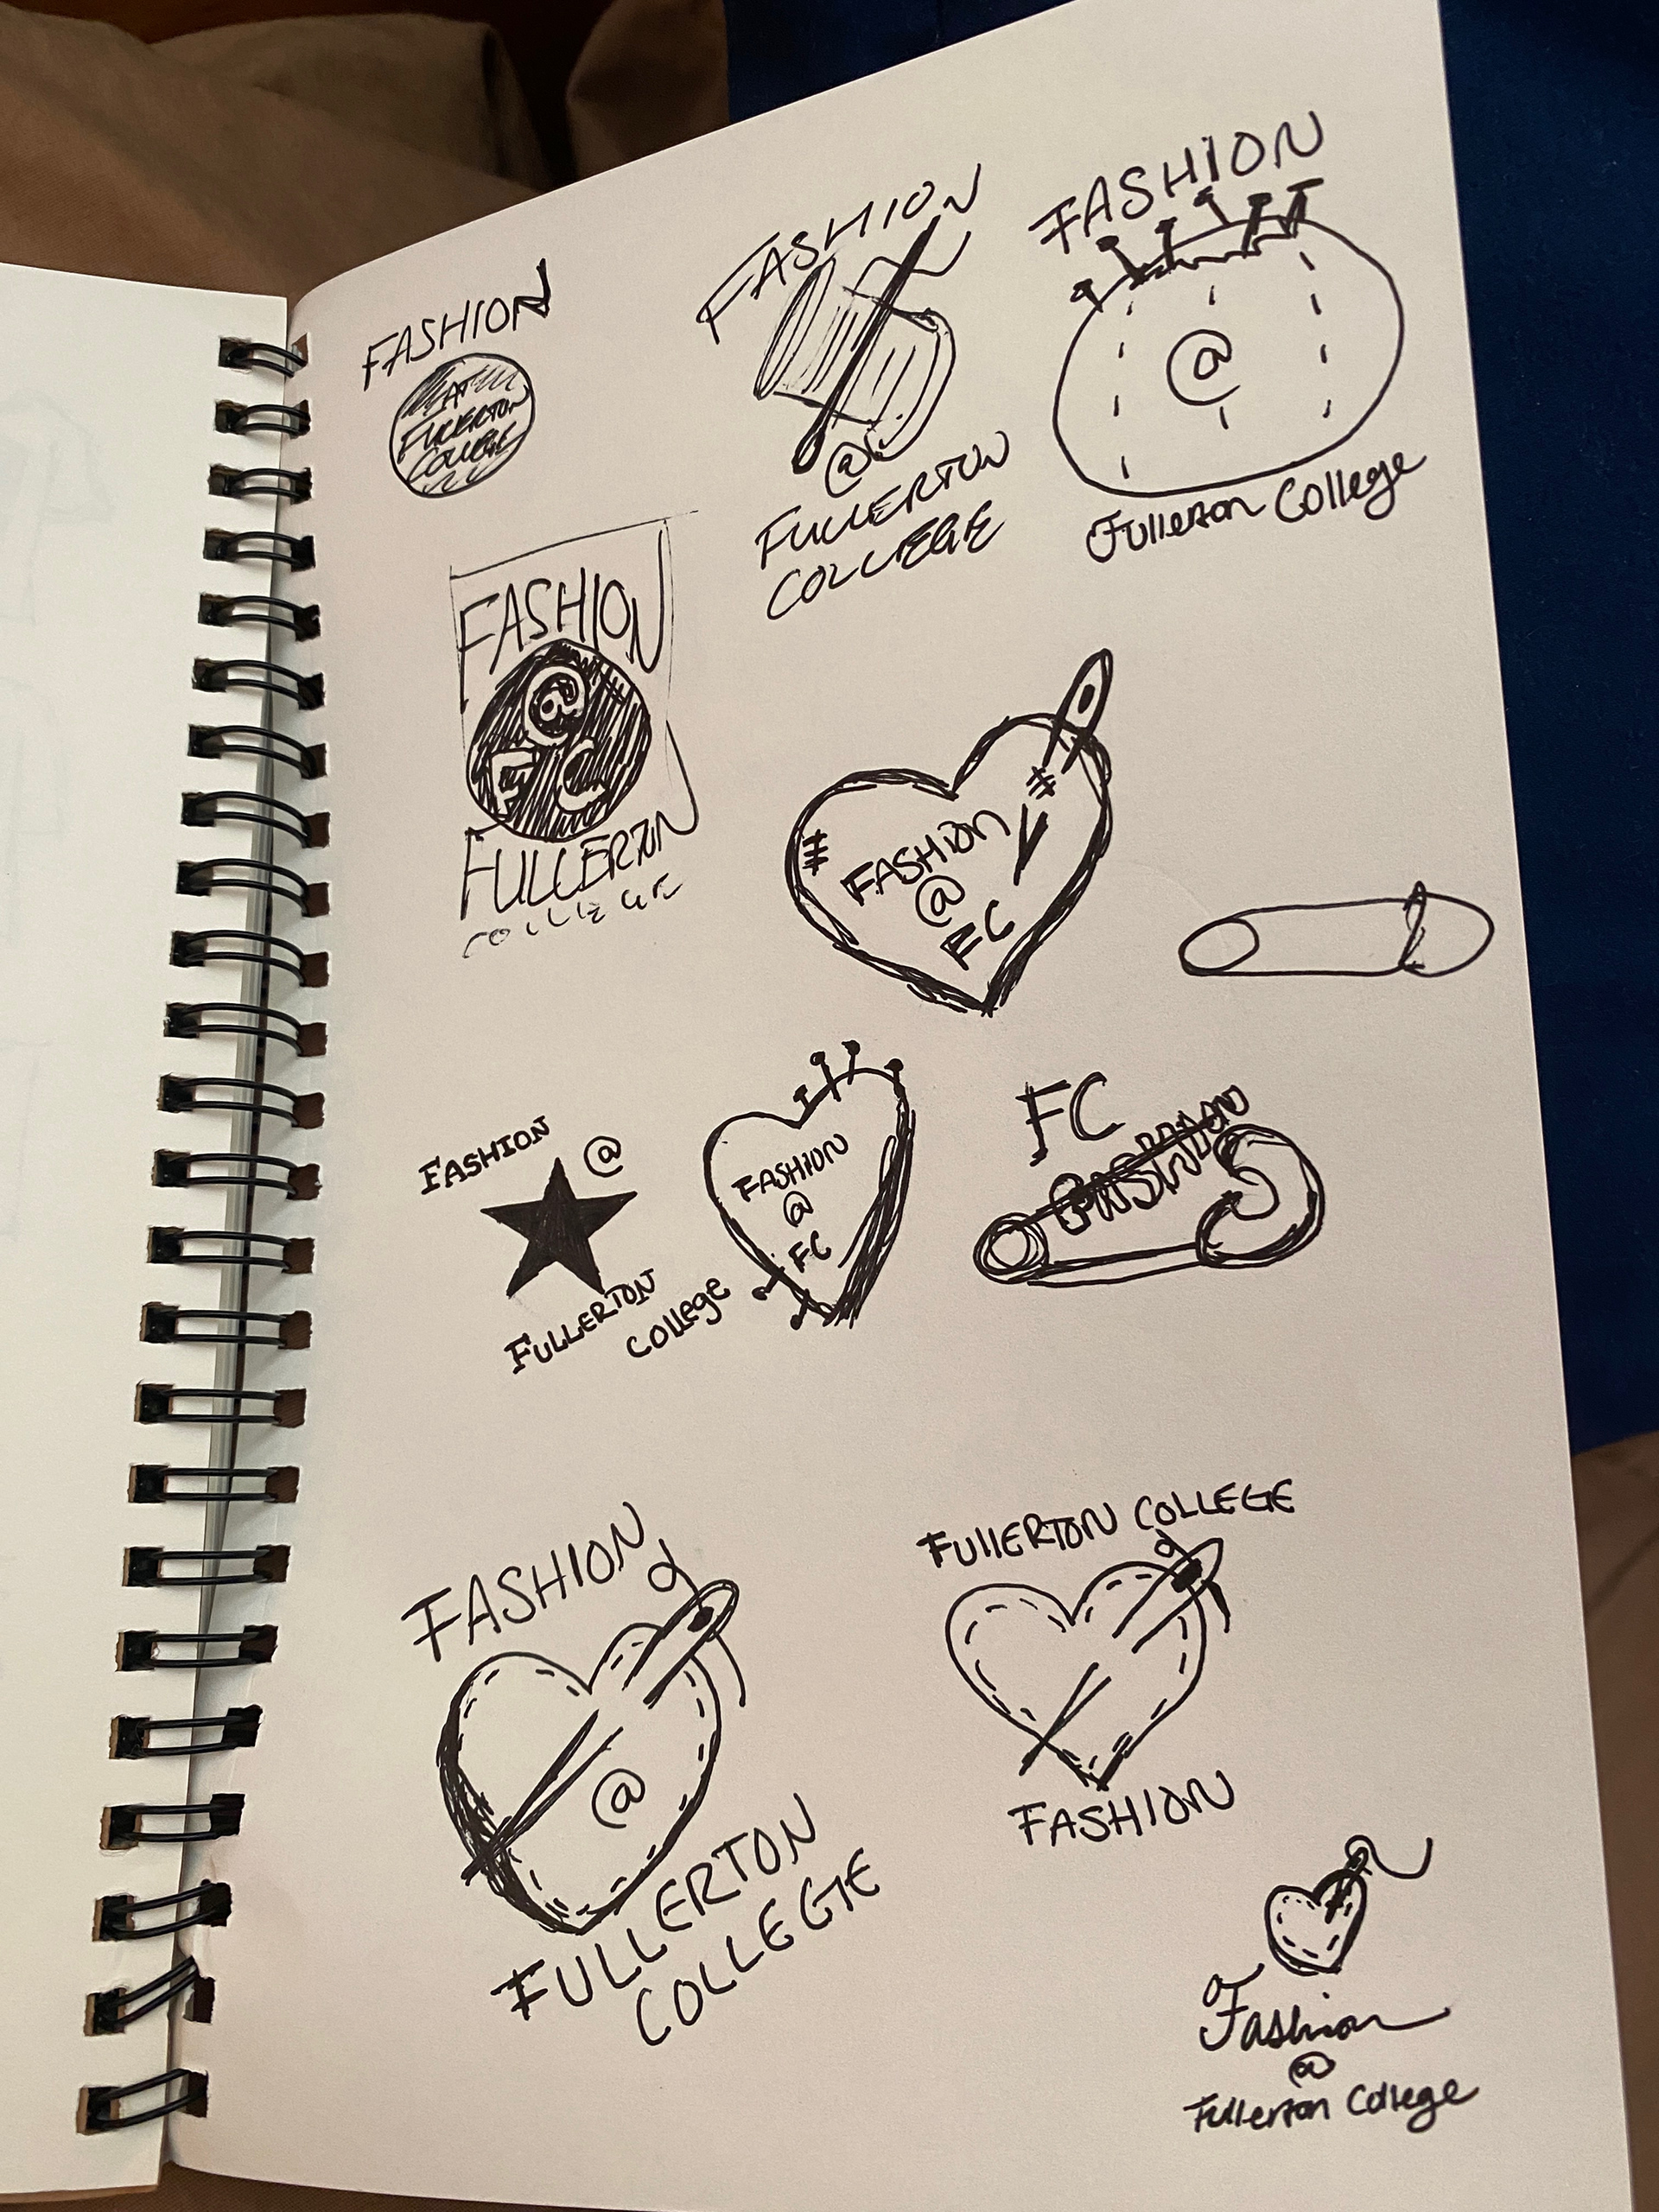 FASHION
AT
FULLERTON
COLLEGE
FASHION
@
FULLERTON
COLLEGE
FASHION
@
Fullerton College
FASHION
@
FC
FULLERTON
COLLEGE
FASHION
@
FC
FASHION
@
FULLERTON
COLLEGE
FASHION
@
FC
FC
FASHION
FASHION
@
FULLERTON
COLLEGE
FULLERTON COLLEGE
FASHION
Fashion
@
Fullerton College